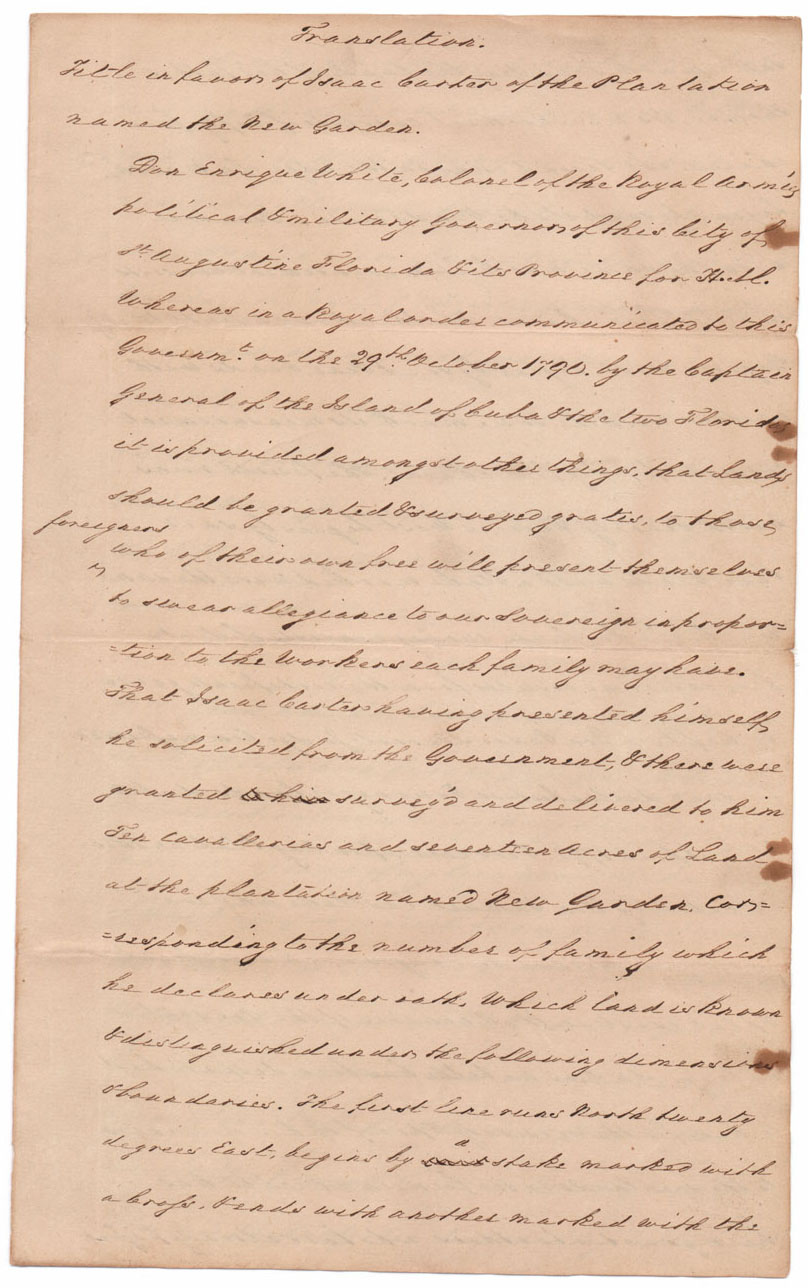 Translation.
Title in favor of Isaac Carter of the Plantation
named the New Garden.
Don Enrique White, Colonel of the Royal Armies
political & military Governor of this City of
St. Augustine Florida & its Province for H. M.
Whereas in a Royal order communicated to this
Governmt. on the 29th. October 1790. by the Captain
General of the Island of Cuba & the two Floridas
it is provided amongst other things, that Lands
should be granted & surveyed gratis, to those
foreigners
who of their own free will present themselves
to swear allegiance to our Sovereign in propor=
=tion to the Workers each family may have.
That Isaac Carter having presented himself,
he solicited from the Government, & there were
granted to him survey'd and delivered to him
Ten cavallerias and seventeen Acres of Land
at the plantation named New Garden. Cor=
=responding to the number of family which
he declares under oath, Which land is known
& distinguished under the following dimensions
& boundaries. The first line runs North twenty
degrees East, begins by a stake marked with
a Cross, & ends with another marked with the